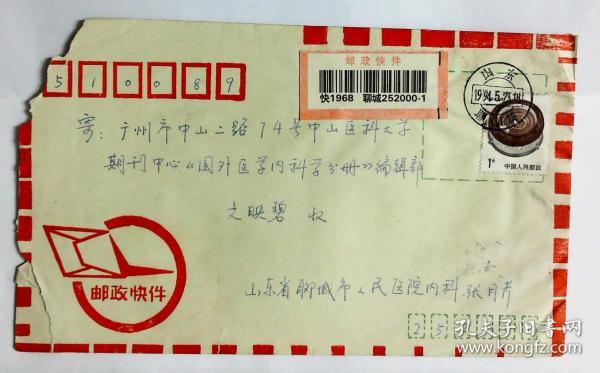 510089
邮政快件
快1968 聊城252000-1
山东
1994.5.
1元
中国人民邮政
寄：广州市中山二路74号中山医科大学
期刊中心《国外医学内科学分册》编辑部
文映碧 收
邮政快件
山东省聊城市人民医院内科 张月芹
25
孔夫子旧书网
www.kongfz.com